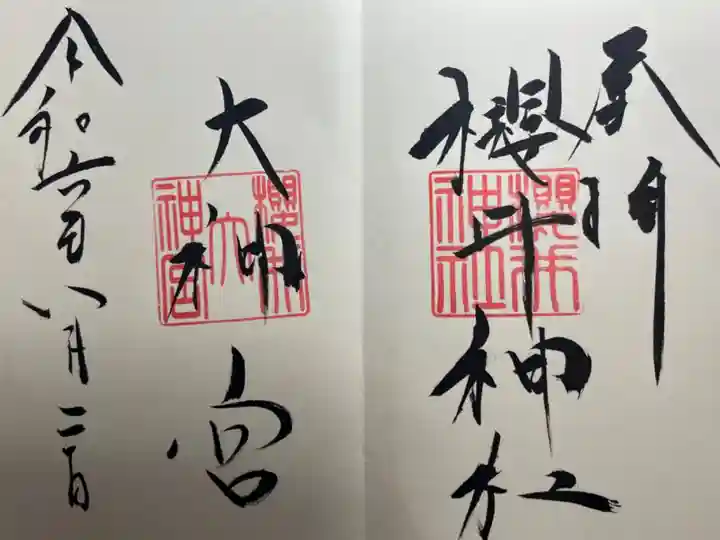 奉拝
櫻井神社
櫻井神社
大神宮
櫻井大神宮
令和六年八月二日